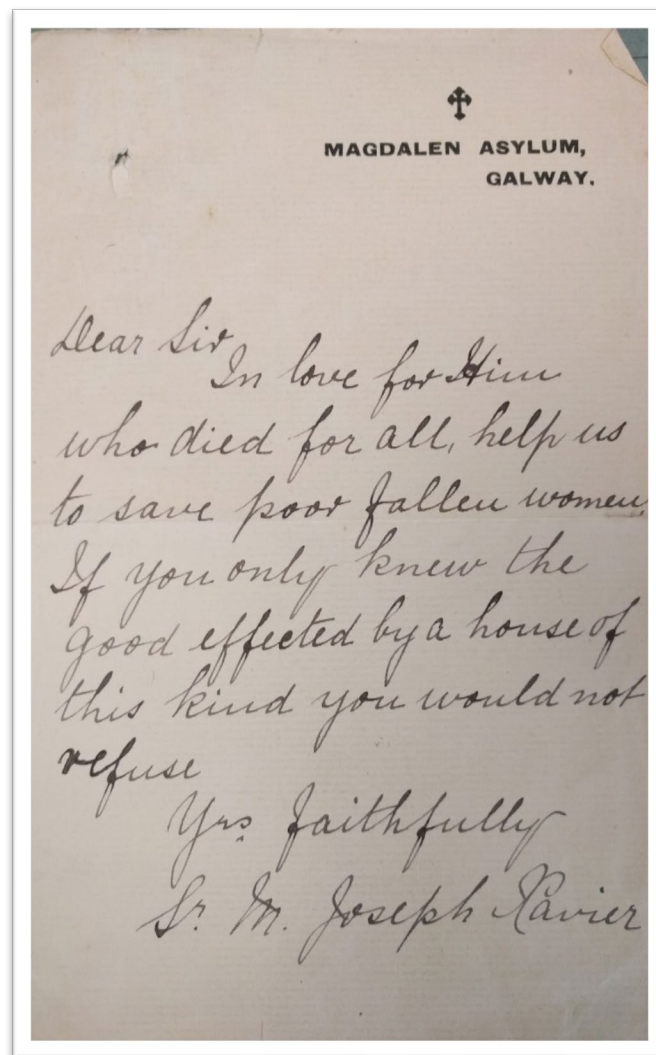 MAGDALEN ASYLUM,
GALWAY.
Dear Sir
In love for Him
who died for all, help us
to save poor fallen women.
If you only knew the
good effected by a house of
this kind you would not
refuse
Yrs faithfully
Sr. M. Joseph Xavier